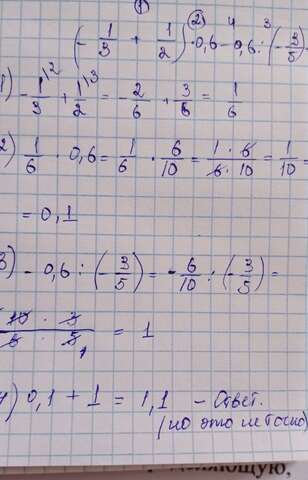 ① ② 4 3
(- 1/3 + 1/2) · 0,6 - 0,6 : (- 3/5)
1) - 1/3 \2 + 1/2 \3 = - 2/6 + 3/6 = 1/6
2) 1/6 · 0,6 = 1/6 · 6/10 = 1 · 6/6 · 10 = 1/10 =
= 0,1
3) - 0,6 : (- 3/5) = - 6/10 : (- 3/5) =
10 · 3/6 · 5 1 = 1
4) 0,1 + 1 = 1,1 - Ответ.
(но это не точно)